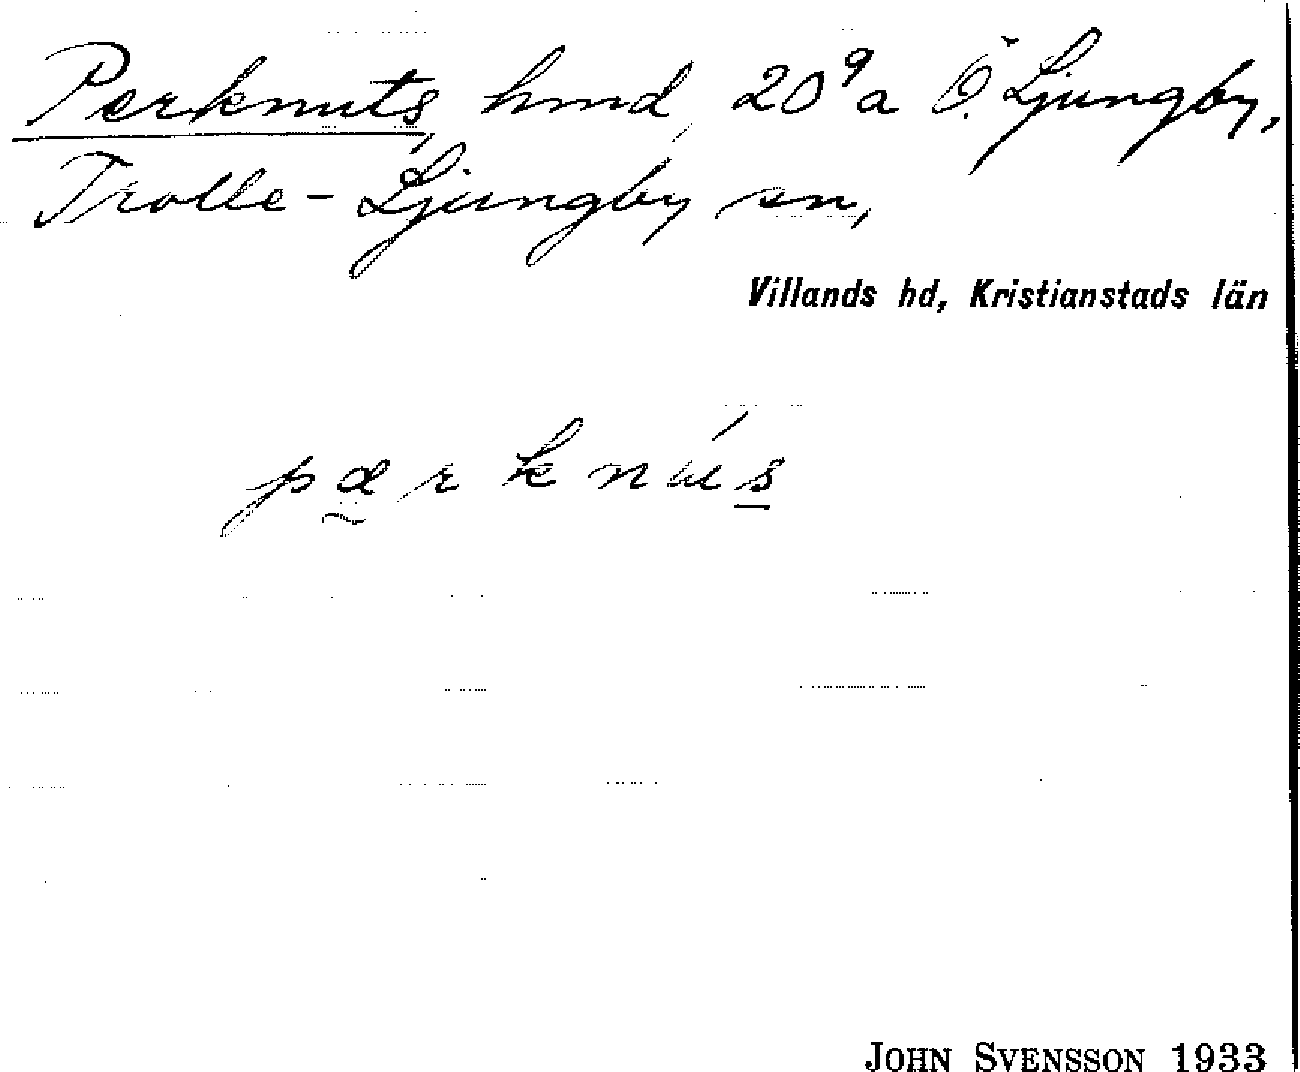 Perknuts, hmd, 20⁹a Ö. Ljungby,
Trolle-Ljungby sn,
Villands hd, Kristianstads län
pærknú̵s
JOHN SVENSSON 1933